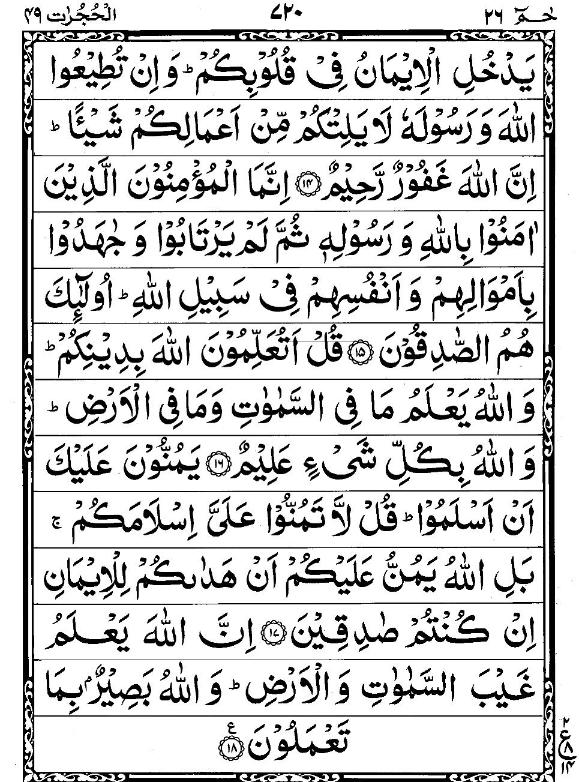 حٰمٓ ٢٦
٧٢٠
الْحُجُرٰت ٤٩
يَدْخُلِ الْاِيْمَانُ فِيْ قُلُوْبِكُمْ ؕ وَ اِنْ تُطِيْعُوا
اللّٰهَ وَ رَسُوْلَهٗ لَا يَلِتْكُمْ مِّنْ اَعْمَالِكُمْ شَيْـًٔا ؕ
اِنَّ اللّٰهَ غَفُوْرٌ رَّحِيْمٌ ۝۱۴ اِنَّمَا الْمُؤْمِنُوْنَ الَّذِيْنَ
اٰمَنُوْا بِاللّٰهِ وَ رَسُوْلِهٖ ثُمَّ لَمْ يَرْتَابُوْا وَ جٰهَدُوْا
بِاَمْوَالِهِمْ وَ اَنْفُسِهِمْ فِيْ سَبِيْلِ اللّٰهِ ؕ اُولٰٓئِكَ
هُمُ الصّٰدِقُوْنَ ۝۱۵ قُلْ اَتُعَلِّمُوْنَ اللّٰهَ بِدِيْنِكُمْ ؕ
وَ اللّٰهُ يَعْلَمُ مَا فِي السَّمٰوٰتِ وَمَا فِي الْاَرْضِ ؕ
وَ اللّٰهُ بِكُلِّ شَيْءٍ عَلِيْمٌ ۝۱۶ يَمُنُّوْنَ عَلَيْكَ
اَنْ اَسْلَمُوْا ؕ قُلْ لَّا تَمُنُّوْا عَلَيَّ اِسْلَامَكُمْ ۚ
بَلِ اللّٰهُ يَمُنُّ عَلَيْكُمْ اَنْ هَدٰىكُمْ لِلْاِيْمَانِ
اِنْ كُنْتُمْ صٰدِقِيْنَ ۝۱۷ اِنَّ اللّٰهَ يَعْلَمُ
غَيْبَ السَّمٰوٰتِ وَ الْاَرْضِ ؕ وَ اللّٰهُ بَصِيْرٌۢ بِمَا
تَعْمَلُوْنَ ۝۱۸ ع
٢
ع ٨
١٤